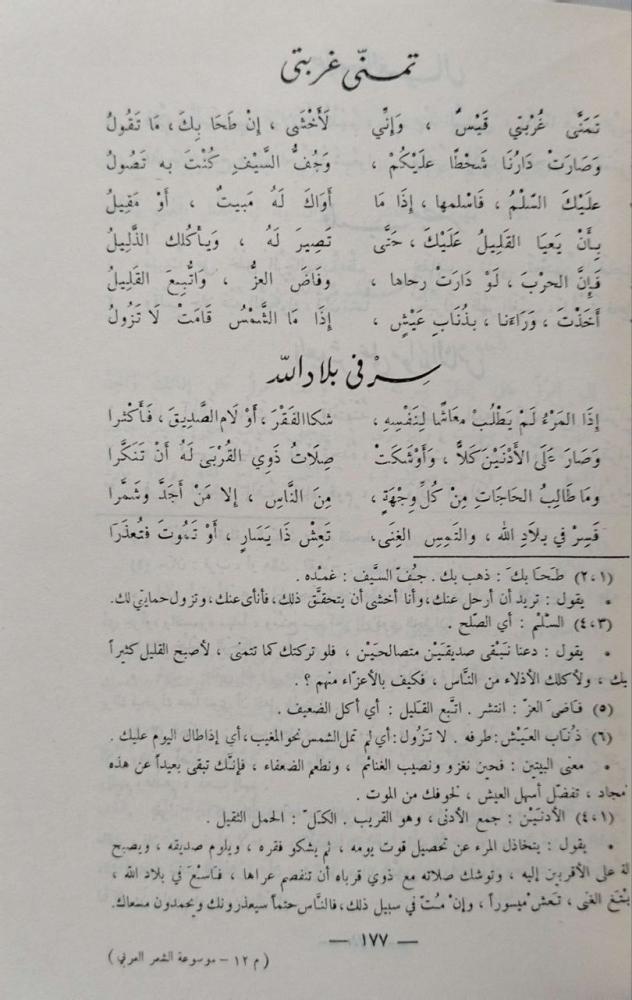 تمنّى غربتي
تَمَنَّى غُرْبَتي قَيْسٌ ، وَإنِّي لَأَخْشَى ، إنْ طَحَا بِكَ ، مَا تَقُولُ
وَصَارَتْ دَارُنَا شَحْطًا علَيْكُمْ ، وَجُفُّ السَّيْفِ كُنْتَ به تَصُولُ
علَيْكَ السّلْمُ ، فَاسْلمها ، إذَا مَا أَوَاكَ لَهُ مَبيتٌ ، أَوْ مَقِيلُ
بِأَنْ يَعيَا القَلِيلُ عَلَيْكَ ، حَتَّى تَصِيرَ لَهُ ، وَيأكُلك الذَّلِيلُ
فَإنَّ الحرْبَ ، لَوْ دَارَتْ رحاها ، وفَاضَ العزُّ ، وَاتُّبِعَ القَلِيلُ
أخَذْتَ ، وَرَاءَنا ، بذُنَابِ عَيْشٍ ، إذَا مَا الشَّمْسُ قَامَتْ لَا تَزُولُ
سِرْ في بلاد اللّه
إذَا المَرْءُ لَمْ يَطْلُبْ مَعَاشًا لِنَفْسِهِ ، شكا الفَقْرَ ، أَوْ لَامَ الصَّدِيقَ ، فَأكْثرا
وَصَارَ عَلَى الأَدْنَيْنَ كَلاًّ ، وَأَوْشَكَتْ صِلَاتُ ذَوِي القُرْبَى لَهُ أَنْ تَنَكَّرا
وما طَالِبُ الحَاجَاتِ مِنْ كُلِّ وِجْهَةٍ ، مِنَ النَّاسِ ، إلا مَنْ أَجَدَّ وَشَمَّرا
فَسِرْ في بلادِ الله ، والتَمِسِ الغِنَى، تَعِشْ ذَا يَسَارٍ ، أَوْ تَمُوتَ فَتُعذَرَا
(٢،١) طَحَا بِكَ : ذهب بك . جفّ السيَّف : غمْده .
• يقول : تريد أن أرحل عنك، وأنا أخشى أن يتحقَّق ذلك، فأنأى عنك، وتزول حمايتي لك.
(٤،٣) السِّلم : أي الصّلح .
• يقول : دعنا نَبْقى صديقَيْن متصالحَيْن ، فلو تركتك كما تتمنى ، لأصبح القليل كثيراً
بك ، ولأكلك الأذلاء من النَّاس ، فكيف بالأعزّاء منهم ؟ .
(٥) فاضَ العزّ : انتشر . اتّبع القليل : أي أكل الضعيف .
(٦) ذُناب العَيْش : طرفه . لا تَزُول : أي لم تمل الشمس نحو المغيب، أي إذا طال اليوم عليك .
• معنى البيتين : فحين نغزو ونصيب الغنائم ، ونطعم الضعفاء ، فإنَّك تبقى بعيداً عن هذه
مجاد ، تفضّل أسهل العيش ، لخوفك من الموت .
(٤،١) الأدنَيْن : جمع الأدنى ، وهو القريب . الكَلّ : الحمل الثقيل .
• يقول : يتخاذل المرء عن تحصيل قوت يومه ، ثم يشكو فقره ، ويلوم صديقه ، ويصبح
لة على الأقربين إليه ، وتوشك صلاته مع ذوي قرباه أن تنفصم عراها ، فاسْعَ في بلاد الله ،
بْتغ الغنى ، تَعش ميسوراً ، وإنْ مُتّ في سبيل ذلك، فالنَّاس حتماً سيعذرونك ويحمدون مسعاك.
— ١٧٧ —
( م ١٢ – موسوعة الشعر العربي )